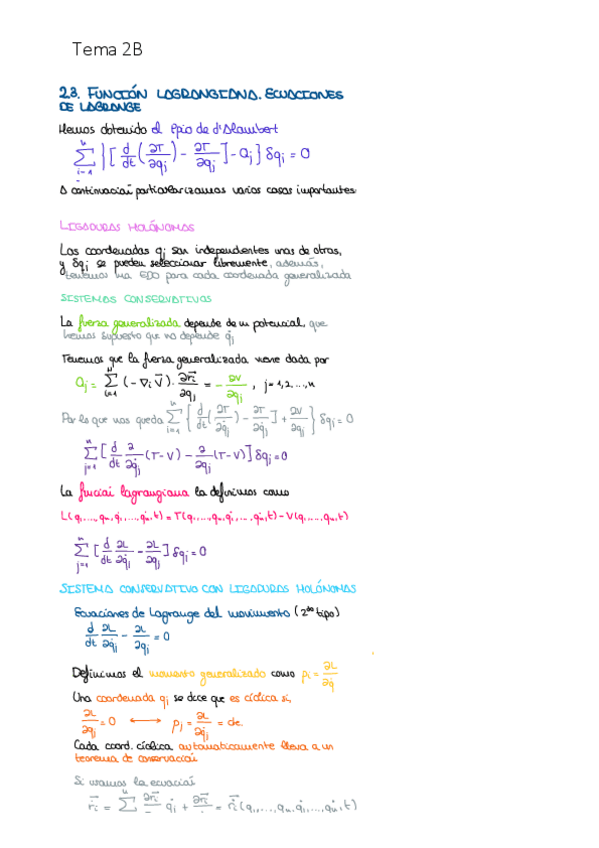 Tema 2B
2.3. FUNCIÓN LAGRANGIANA. ECUACIONES
DE LAGRANGE
Hemos obtenido el Ppio de d'Alambert
∑_{i=1}^{n} { [ d/dt (∂T/∂q̇j) - ∂T/∂qj ] - Qj } δqj = 0
A continuación particularizamos varios casos importantes
LIGADURAS HOLÓNOMAS
Las coordenadas qj son independientes unas de otras,
y δqj se pueden seleccionar libremente, además,
tenemos una EDO para cada coordenada generalizada
SISTEMAS CONSERVATIVOS
La fuerza generalizada depende de un potencial, que
hemos supuesto que no depende q̇j
Tenemos que la fuerza generalizada viene dada por
Qj = ∑_{i=1} (-∇i V) · ∂r⃗i/∂qj = - ∂V/∂qj , j=1,2,...,n
Por lo que nos queda ∑_{i=1}^{n} { [ d/dt (∂T/∂q̇j) - ∂T/∂qj ] + ∂V/∂qj } δqj = 0
∑_{j=1}^{n} [ d/dt ∂/∂q̇j (T-V) - ∂/∂qj (T-V) ] δqj = 0
La función lagrangiana la definimos como
L(q1,...,qn,q̇1,...,q̇n,t) = T(q1,...,qn,q̇1,...,q̇n,t) - V(q1,...,qn,t)
∑_{j=1}^{n} [ d/dt ∂L/∂q̇j - ∂L/∂qj ] δqj = 0
SISTEMA CONSERVATIVO CON LIGADURAS HOLÓNOMAS
Ecuaciones de Lagrange del movimiento (2do tipo)
d/dt ∂L/∂q̇j - ∂L/∂qj = 0
Definimos el momento generalizado como pi = ∂L/∂q̇
Una coordenada qj se dice que es cíclica si,
∂L/∂qj = 0 ⟷ pj = ∂L/∂q̇j = cte.
Cada coord. cíclica automáticamente lleva a un
teorema de conservación
Si usamos la ecuación
r⃗i = ∑^{n} ∂r⃗i q̇j + ∂r⃗i = r⃗i (q1,...,qn,q̇1,...,q̇n,t)